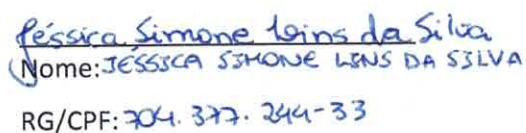 Jéssica Simone Lins da Silva
Nome: JÉSSICA SIMONE LINS DA SILVA
RG/CPF: 704.377.244-33